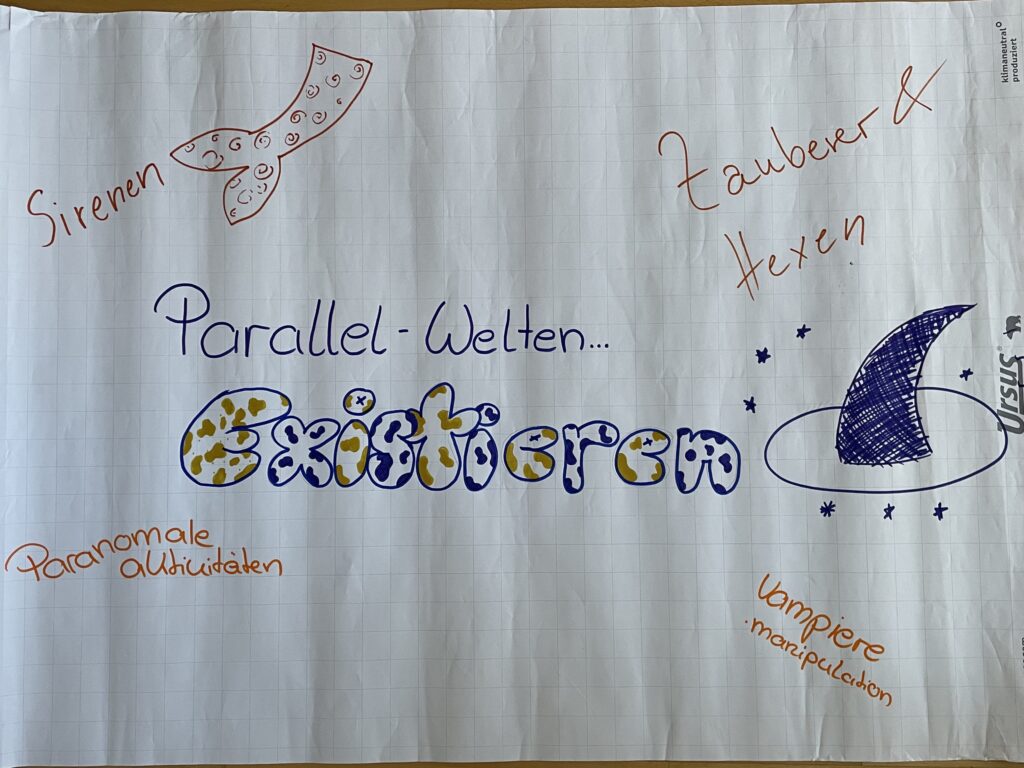 klimaneutral
produziert
Sirenen
Zauberer &
Hexen
Parallel-Welten...
Existieren
Ursus®
Paranomale
aktivitäten
Vampiere
·manipulation